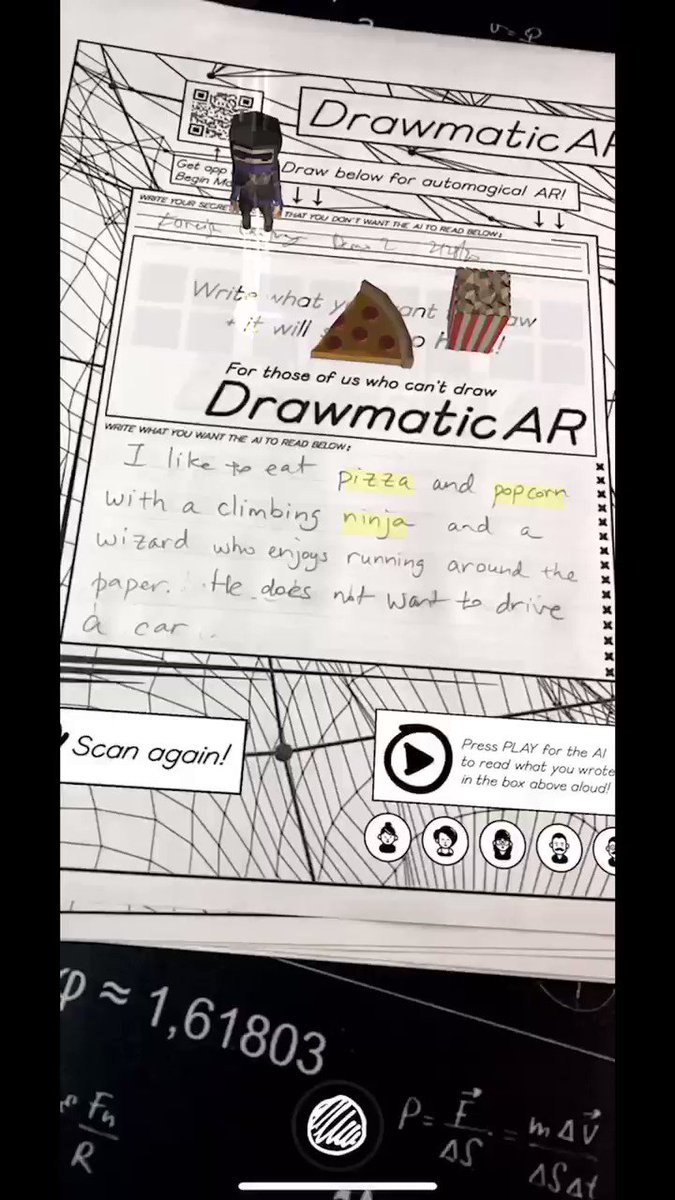 Drawmatic AR
Get app
Begin
Draw below for automagical AR!
WRITE YOUR SECRE THAT YOU DON'T WANT THE AI TO READ BELOW:
Write what y ant aw
+ it will
For those of us who can't draw
Drawmatic AR
WRITE WHAT YOU WANT THE AI TO READ BELOW:
I like to eat pizza and popcorn
with a climbing ninja and a
wizard who enjoys running around the
paper. He does not want to drive
a car.
Scan again!
Press PLAY for the AI
to read what you wrote
in the box above aloud!
φ ≈ 1,61803
Fn
R
P = F / ΔS = mΔv / ΔSΔt